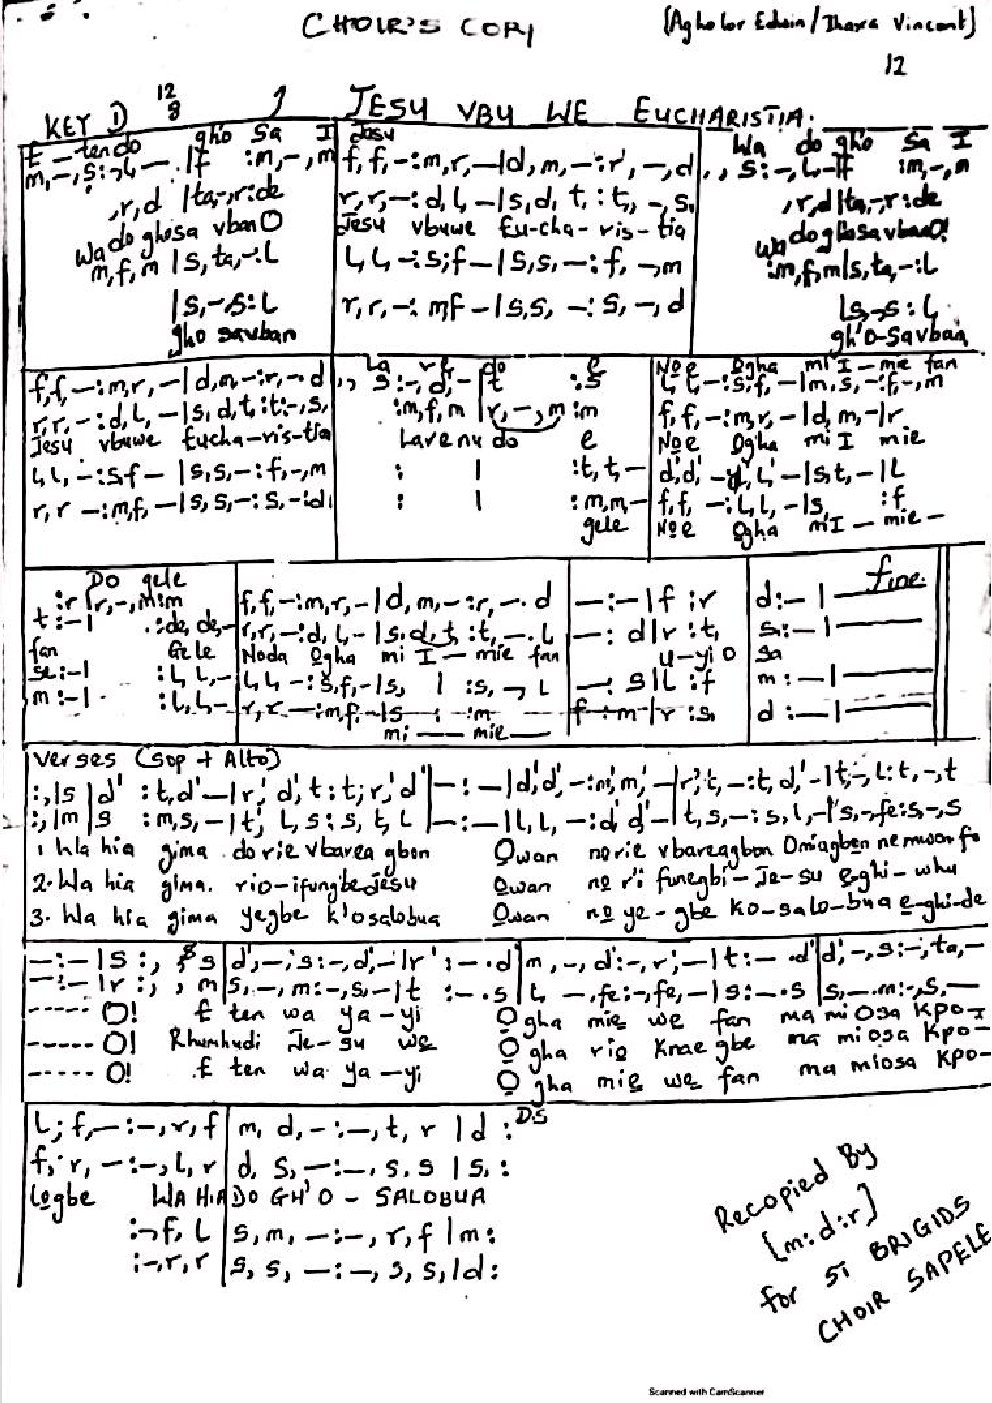 CHOIR'S COPY
(Agholor Edwin/Ihaza Vincent)
12
KEY D 12 8 JESU VBU WE EUCHARISTIA.
E - ten do gho Sa I
m,-,s:-,L,- |f :m,-,m
,r,d |ta,-,r:de
Wa do ghosa vban O
m,f,m |s,ta,-:L
|s,-,s:L
gho savban
Jesu
f,f,-:m,r,-|d,m,-:r,-,d
r,r,-:d,L,-|s,d,t,:t,,-,s,
Jesu vbuwe Eu-cha-ris-tia
L,L,-:s,f-|s,s,-:f,-,m
r,r,-:mf-|s,s,-:s,-,d
Wa do gho Sa I
,,s:-,L-|f :m,-,m
,r,d|ta,-,r:de
Wa do ghosavban O!
:m,f,m|s,ta,-:L
|s,-,s:L
gh'O-Savban
f,f,-:m,r,-|d,m,-:r,-,d
r,r,-:d,L,-|s,d,t,:t,-,s,
Jesu vbuwe Eucha-ris-tia
L,L,-:s,f-|s,s,-:f,-,m
r,r-:m,f,-|s,s,-:s,-:d
La ve do e
,,s:-,d,-|t :s
:m,f,m |r,-,m:m
Lavenu do e
: | :t,t,-
: | :m,m,-
gele
Noe Ogha mi I - mie fan
L,L,-:s,f,-|m,s,-:f,-,m
f,f,-:m,r,-|d,m,-|r
Noe Ogha mi I mie
d',d',-:d',L'-|s,t,-|L
f,f,-:L,L,-|s, :f
Noe Ogha mi I - mie -
Do gele
:r |r,-,m:m
t:-| :de,de,-
fan Gele
se:-| :L,L,-
m:-| :L,L,-
f,f,-:m,r,-|d,m,-:r,-.d
r,r,-:d,L,-|s,d,t,:t,-.L
Noda Ogha mi I - mie fan
L,L,-:s,f,-|s, | :s,-,L
r,r,-:m,f,-|s : :m
mi - mie -
-:-|f :r
-:d|r :t,
u-yi O
-:s|L :f
f:m|r:s,
fine.
d:-|
s,:-|
Sa
m:-|
d:-|
Verses (Sop + Alto)
:,|s |d' :t,d'-|r',d',t:t;r',d'|-:-|d',d',-:m',m',-|r',t,-:t,d',-|t,-,L:t,-,t
:,|m |s :m,s,-|t,L,s:s,t,L |-:-|L,L,-:d',d'-|t,s,-:s,L,-|s,-,fe:s,-,s
1. Wa hia gima dorie vbarea gbon Owan norie vbareagbon Omiagben nemwan fo
2. Wa hia gima. rio-ifungbe Jesu Owan no ri funegbi-Je-su e-ghi-whu
3. Wa hia gima yegbe k'osalobua Owan no ye-gbe ko-salo-bua e-ghi-de
-:-|s:, $s|d',-,s:-,d',-|r':-.d'|m,-,d':-,r',-|t:-.d'|d',-,s:-,ta,-
-:-|r:, ,m|s,-,m:-,s,-|t :-.s|L,-,fe:-,fe,-|s:-.s|s,-.m:-,s,-
----- O! E ten wa ya-yi Ogha mie we fan ma mi Osa Kpo-
----- O! Rhumhudi Je-su we Ogha rio Knae gbe ma mi osa Kpo-
----- O! E ten wa ya-yi Ogha mie we fan ma miosa Kpo-
L;f,-:-,r,f|m,d,-:-,t,r|d: D.S
f,r,-:-,L,r|d,s,-:-,s,s|s,:
Logbe WA HIA DO GH'O-SALOBUA
:-,f,L|s,m,-:-,r,f|m:
:-,r,r|s,s,-:-,s,s,|d:
Recopied By
[m:d:r]
for ST BRIGIDS
CHOIR SAPELE
Scanned with CamScanner